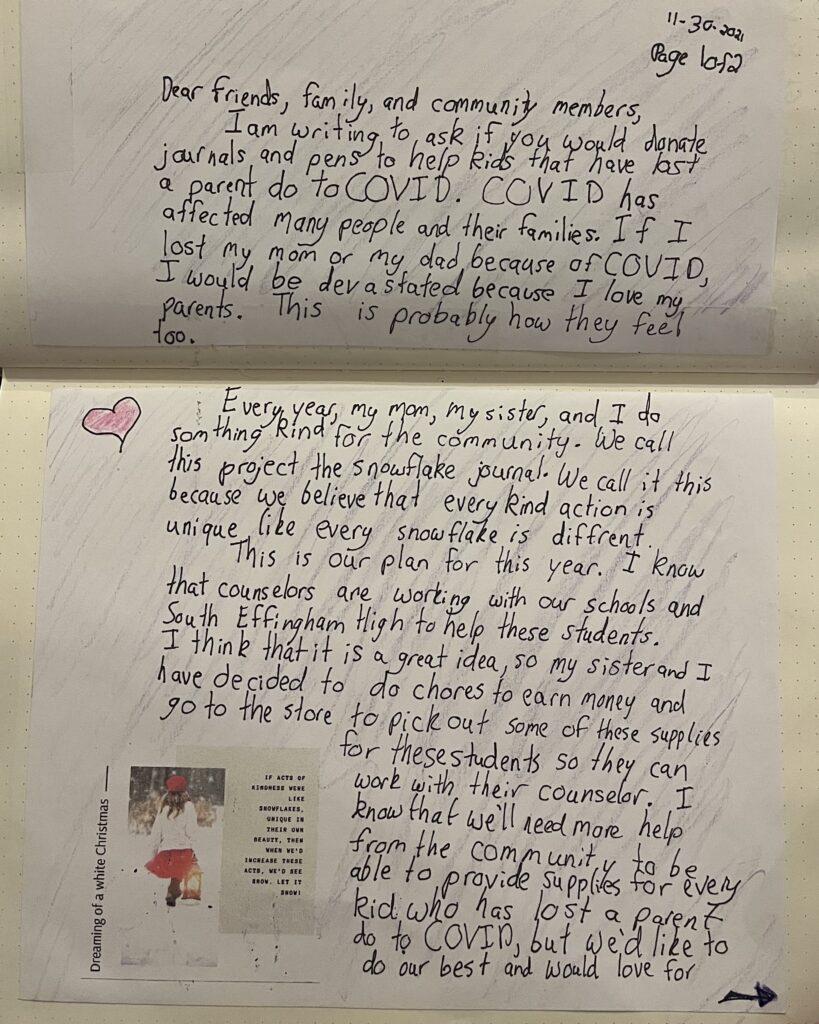 11-30-2021
Page 1of2
Dear friends, family, and community members,
I am writing to ask if you would donate
journals and pens to help kids that have lost
a parent do to COVID. COVID has
affected many people and their families. If I
lost my mom or my dad because of COVID,
I would be devastated because I love my
parents. This is probably how they feel
too.
Every year, my mom, my sister, and I do
somthing kind for the community. We call
this project the snowflake journal. We call it this
because we believe that every kind action is
unique like every snowflake is diffrent.
This is our plan for this year. I know
that counselors are working with our schools and
South Effingham High to help these students.
I think that it is a great idea, so my sister and I
have decided to do chores to earn money and
go to the store to pick out some of these supplies
for these students so they can
work with their counselor. I
know that we'll need more help
from the community to be
able to provide supplies for every
kid who has lost a parent
do to COVID, but we'd like to
do our best and would love for
Dreaming of a white Christmas
IF ACTS OF
KINDNESS WERE
LIKE
SNOWFLAKES,
UNIQUE IN
THEIR OWN
BEAUTY, THEN
WHEN WE'D
INCREASE THESE
ACTS, WE'D SEE
SNOW. LET IT
SNOW!